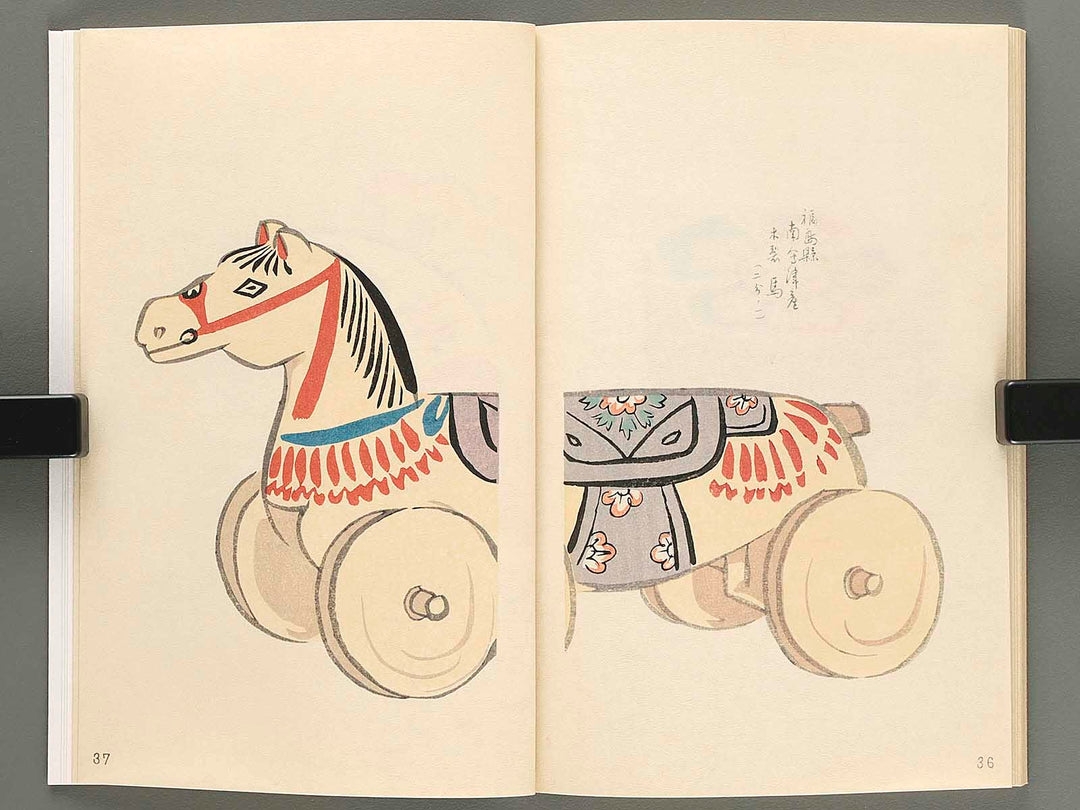 福島縣
南会津産
木製馬
(二分ノ一)
36
37